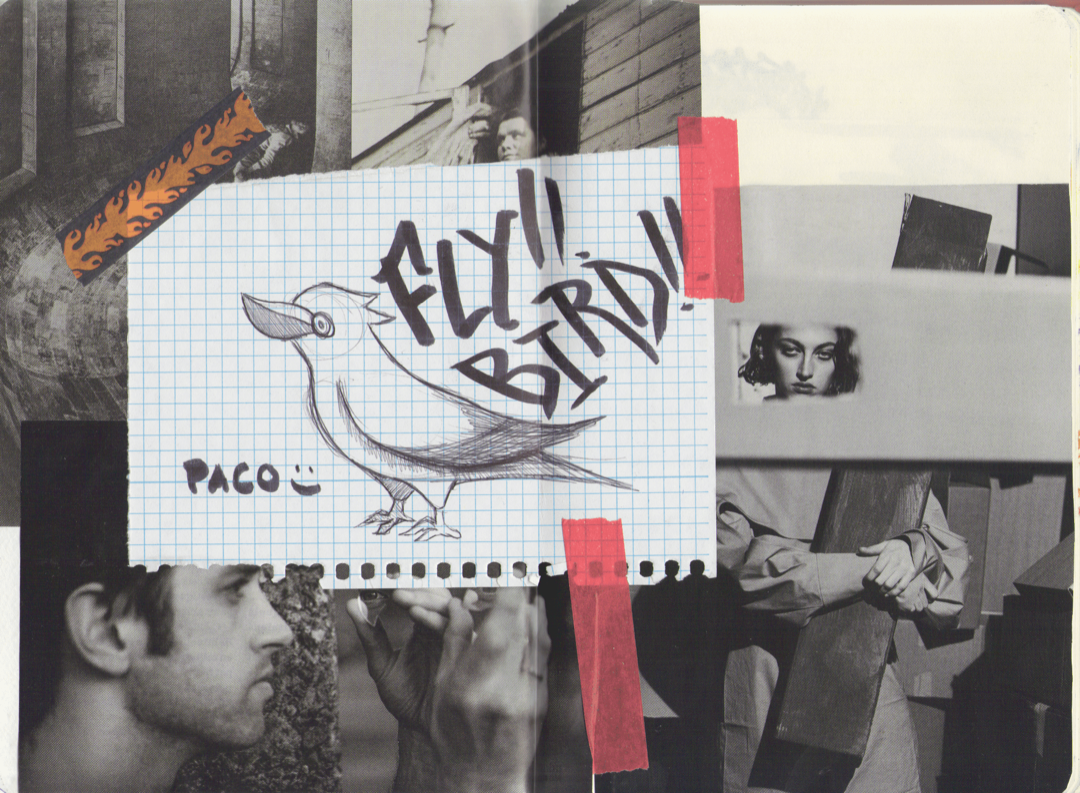 FLY!!
BIRD!!
PACO :)